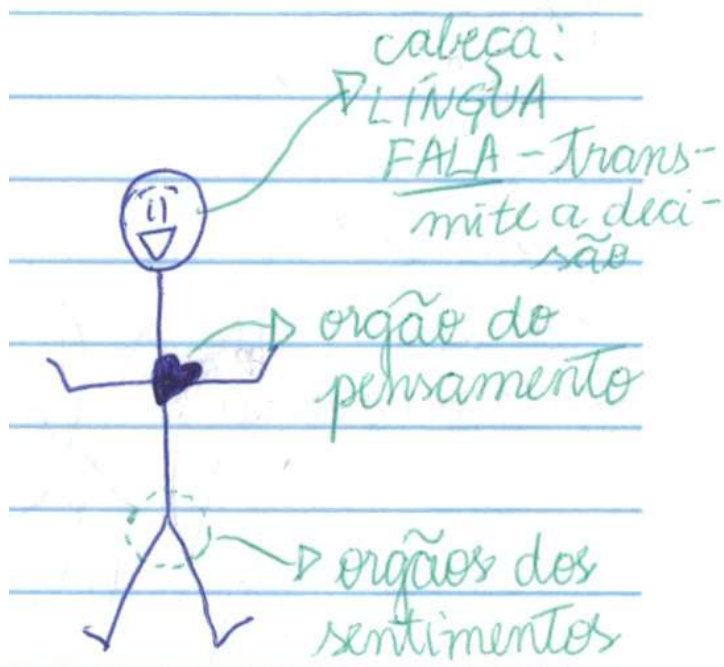 cabeça:
LÍNGUA
FALA - trans-
mite a deci-
são
orgão do
pensamento
orgãos dos
sentimentos